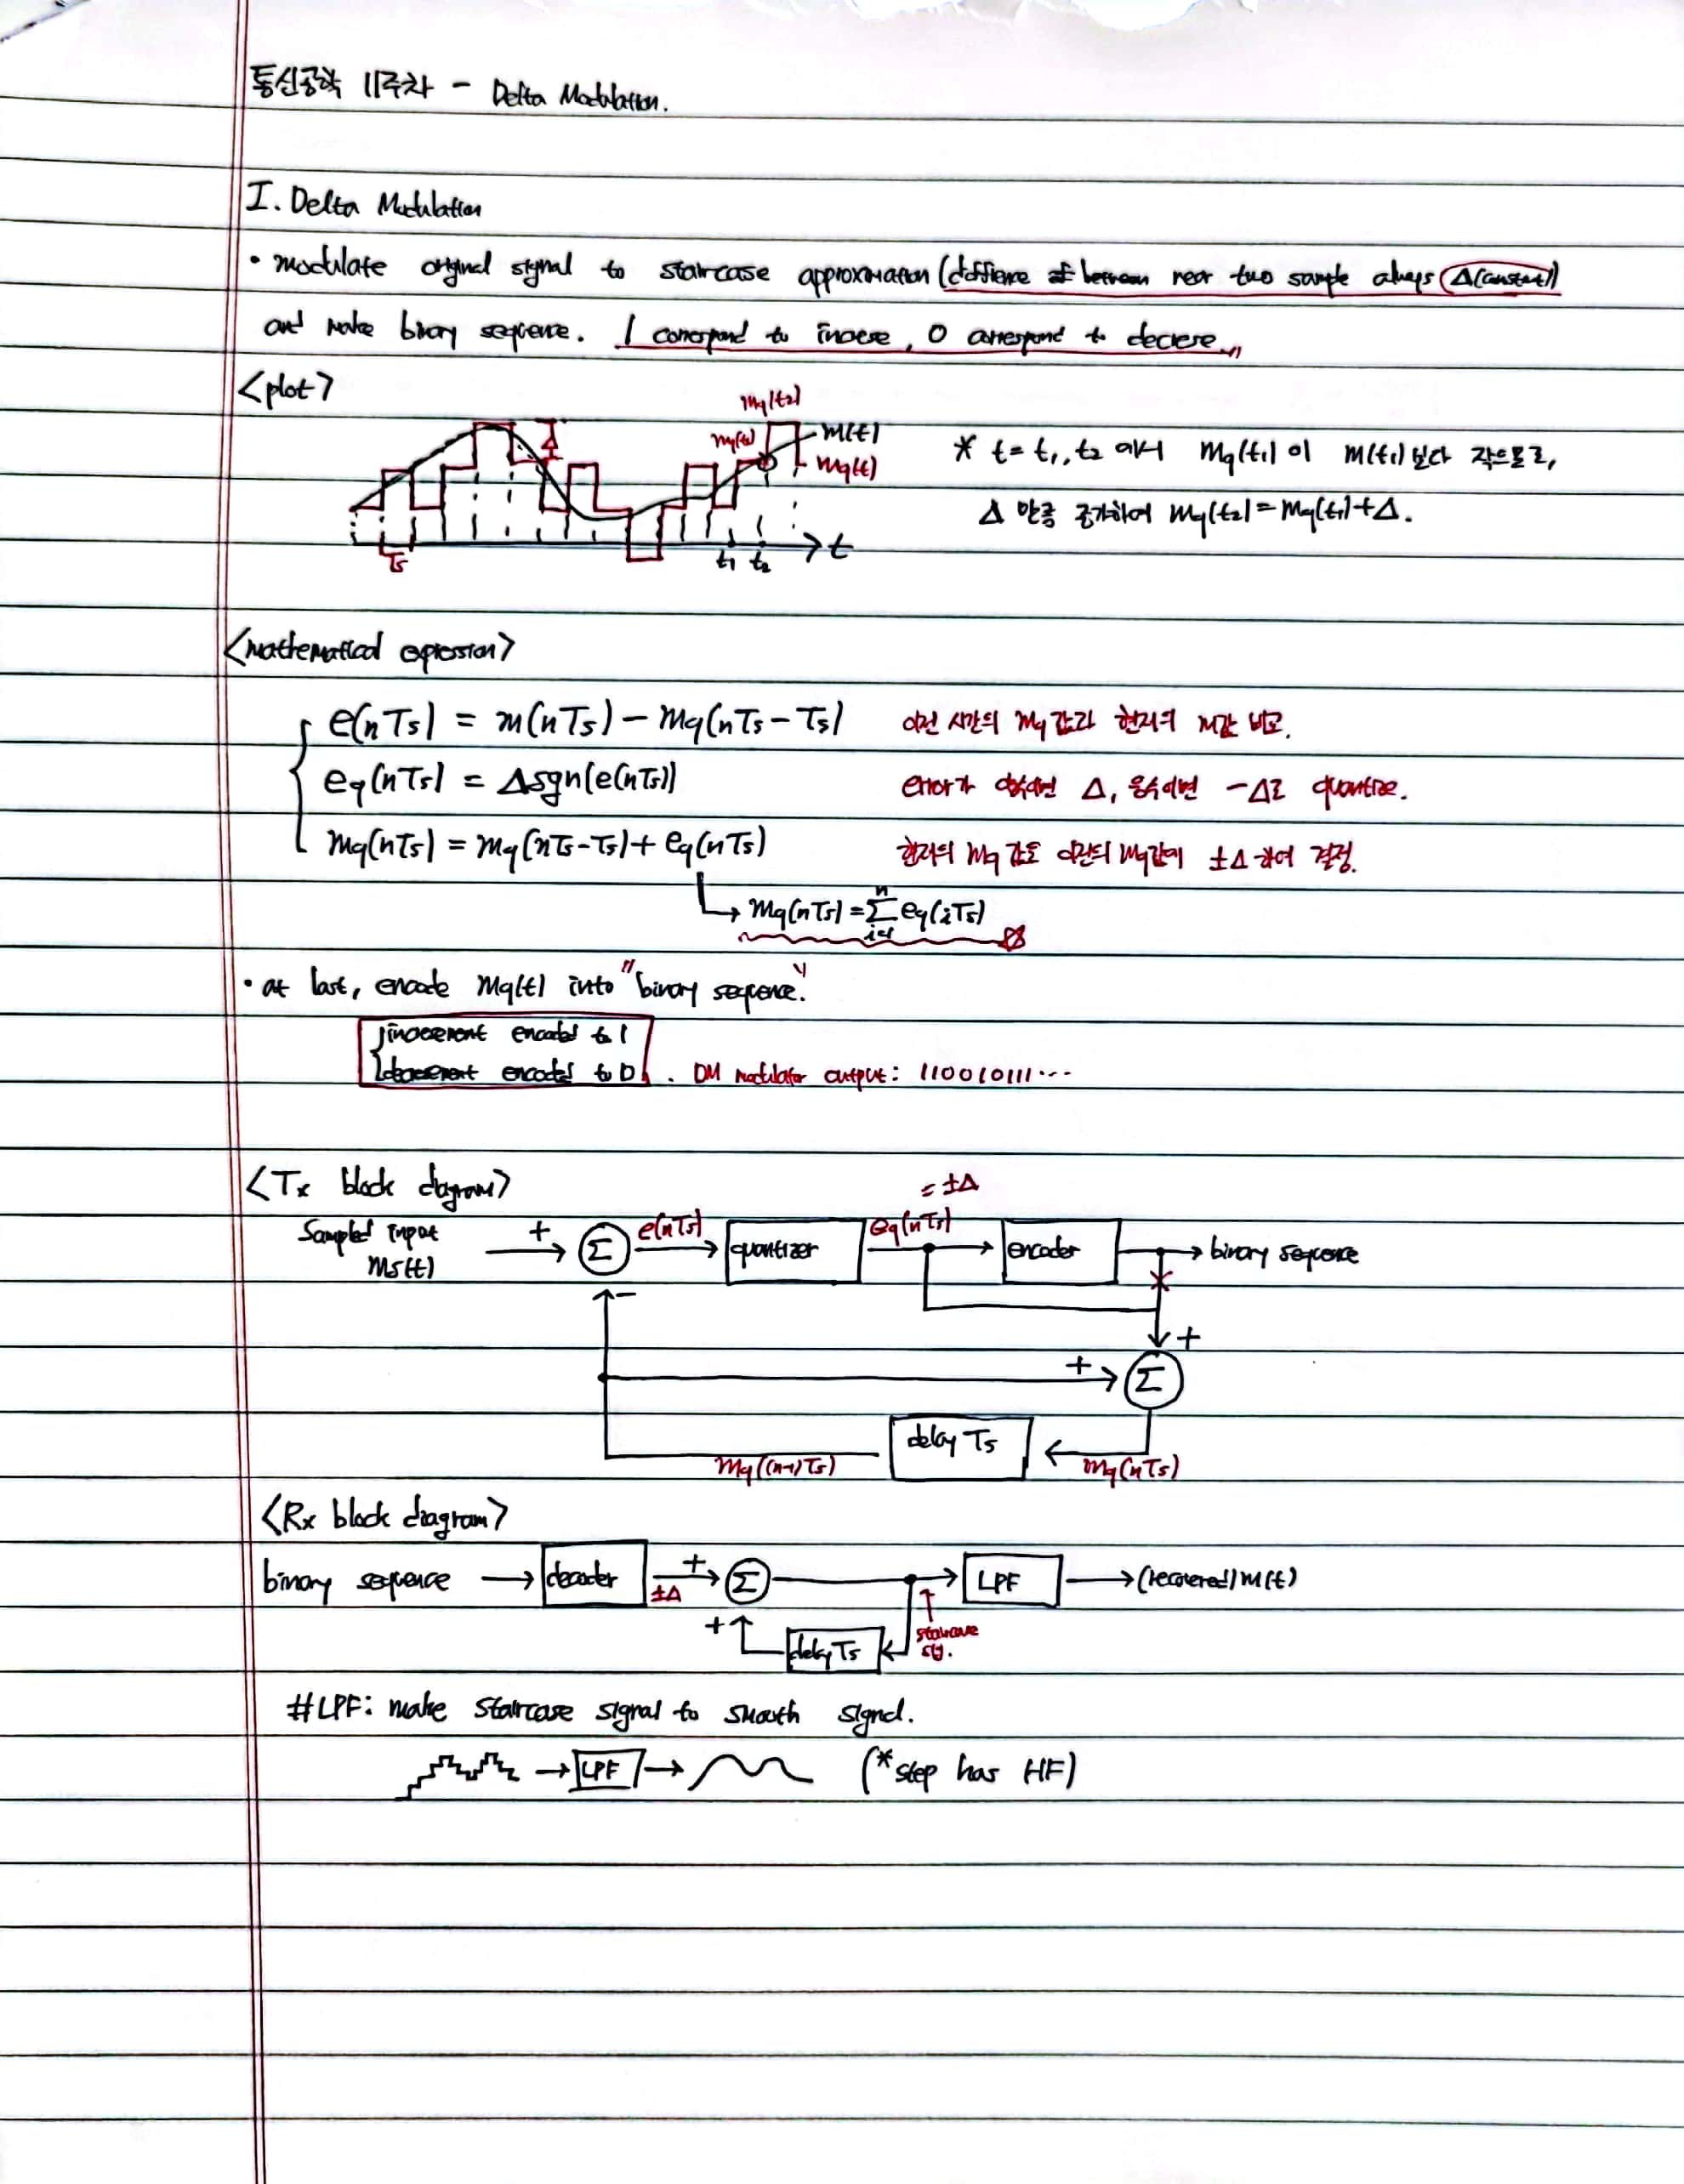 통신공학 11주차 - Delta Modulation.
I. Delta Modulation
• modulate original signal to staircase approximation (differene between near two sample always Δ(constant))
and make binary sequence. 1 correspond to increse, 0 correspond to decrese.,,
<plot>
mq(t2)
mq(t1)
m(t)
mq(t)
Δ
Ts
t1 t2
t
* t = t1, t2 에서 mq(t1)이 m(t1)보다 작으므로,
Δ 만큼 증가하여 mq(t2) = mq(t1)+Δ.
<mathematical expression>
e(nTs) = m(nTs) - mq(nTs-Ts) 이전 시간의 mq값과 현재의 m값 비교.
eq(nTs) = Δsgn(e(nTs)) error가 양수이면 Δ, 음수이면 -Δ로 quantize.
mq(nTs) = mq(nTs-Ts) + eq(nTs) 현재의 mq값은 이전의 mq값에 ±Δ 하여 결정.
→ mq(nTs) = Σ eq(iTs)
n
i=1
• at last, encode mq(t) into "binary sequence."
increment encoded to 1
decrement encoded to 0. DM modulator output: 110010111...
<Tx block diagram>
= ±Δ
Sampled input
ms(t)
+ Σ e(nTs) quantizer eq(nTs) encoder → binary sequence
-
+
+ Σ
delay Ts
mq((n-1)Ts) mq(nTs)
<Rx block diagram>
binary sequence → decoder + Σ → LPF → (recovered) m(t)
±Δ
+ delay Ts
staircase
sig.
#LPF: make staircase signal to smooth signal.
→ LPF → (*step has HF)